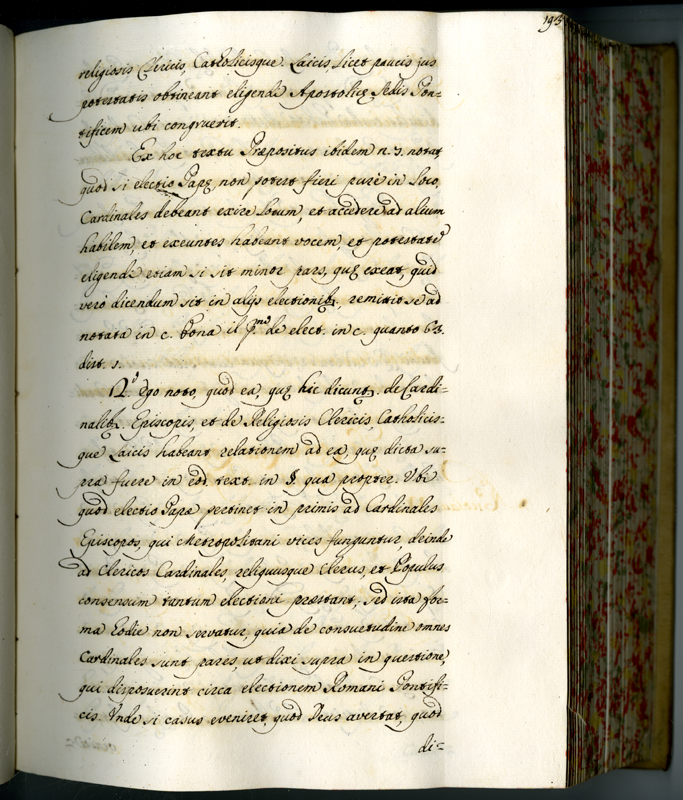 193
religiosis Clericis, Catholicisque Laicis, licet paucis jus
potestatis obtineant eligendi Apostolicę Sedis Pon=
tificem ubi congruerit.
Ex hoc textu Præpositus ibidem n. 3. notat,
quod si electio Papę non potest fieri pure in Loco,
Cardinales debeant exire Locum, et accedere ad alium
habilem, et exeuntes habeant vocem, et potestatē
eligendi etiam si sit minor pars, quę exeat, quid
vero dicendum sit in alijs electionib., remittit se ad
notata in c. bona il p.mo de elect. in c. quanto 63.
dist. 1.
N.º ego noto, quod ea, quę hic dicunt. de Cardi=
nalib. Episcopis, et de Religiosis Clericis Catholicis=
que Laicis habeant relationem ad ea, quę dicta su=
pra fuere in eod. text. in §. qua propter. Ubi
quod electio Papæ pertinet in primis ad Cardinales
Episcopos, qui Metropolitani vices funguntur, deinde
ad Clericos Cardinales, reliquusque Clerus, et Populus
consensum tantum electioni præstant, sed ista for=
ma hodie non servatur, quia de consuetudine omnes
Cardinales sunt pares, ut dixi supra in questione,
qui disposuerint circa electionem Romani Pontifi=
cis. Unde si casus eveniret, quod Deus avertat, quod
di=